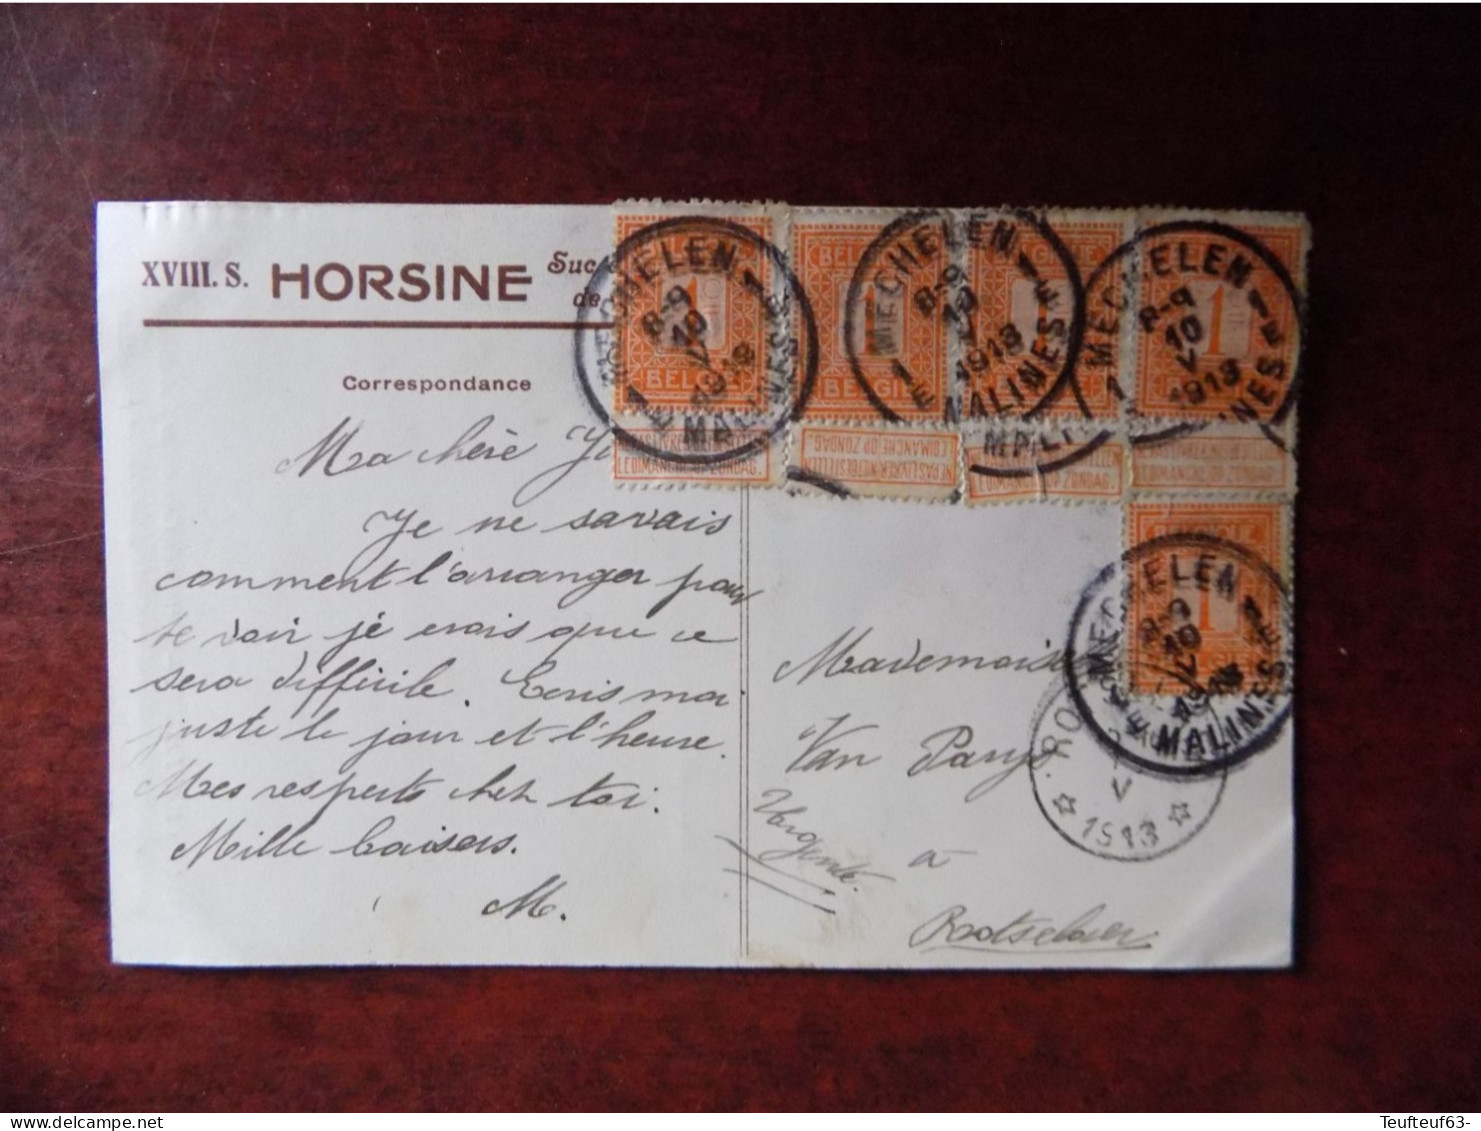 XVIII. S. HORSINE Suc
de
Correspondance
Ma chère
Je ne savais
comment l'arranger pour
te voir je crois que ce
sera difficile. Ecris moi
juste le jour et l'heure.
Mes respects chez toi.
Mille baisers.
M.
BELGIË
1
NE PAS LIVRER LE DIMANCHE
NIET BESTELLEN OP ZONDAG
MECHELEN 1 E
8-9
10
V
1913
MALINES 1 E
Mademoiselle
Van
Urgente.
à
Rotselaer
V
1913
Teufteuf63-